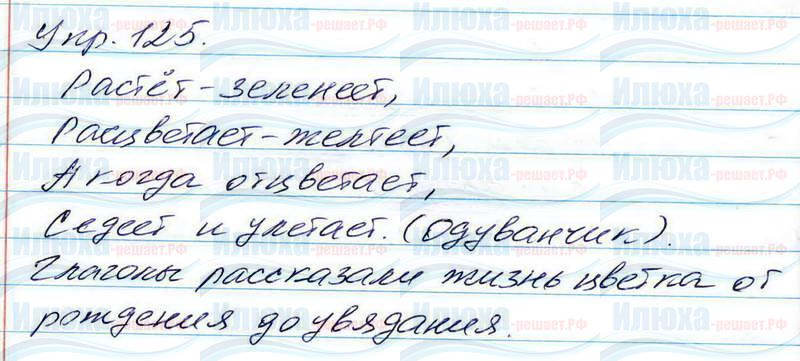 Упр. 125.
Растёт - зеленеет,
Расцветает - желтеет,
А когда отцветает,
Седеет и улетает. (Одуванчик).
Глаголы рассказали жизнь цветка от
рождения до увядания.